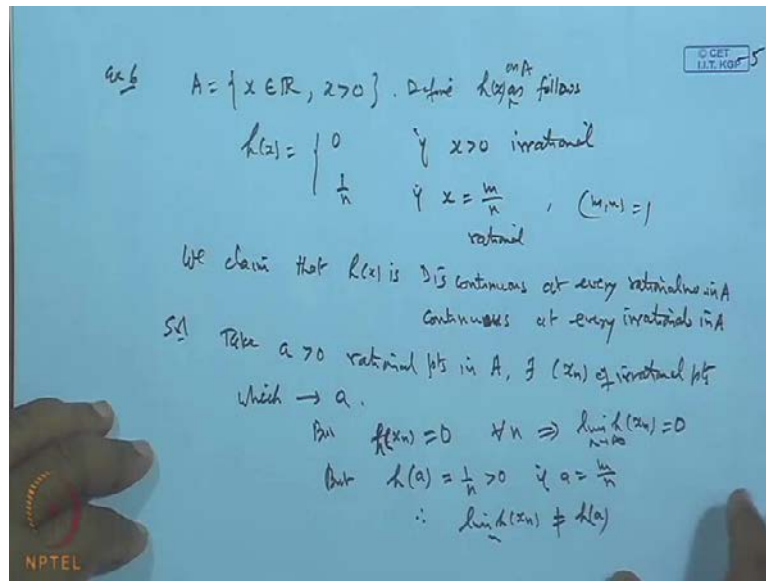 © CET
I.I.T. KGP -5
Ex 6 A = { x ∈ ℝ, x>0 }. Define h(x) as on A follows
h(x) = { 0 if x>0 irrational
1/n if x = m/n , (m,n) = 1
rational
We claim that h(x) is Discontinuous at every rational in A
Continuous at every irrational in A
Sol Take a>0 rational pts in A, ∃ (xn) of irrational pts
which → a.
But h(xn) = 0 ∀n ⇒ lim h(xn) = 0
n→∞
But h(a) = 1/n > 0 if a = m/n
∴ lim h(xn) ≠ h(a)
n
NPTEL